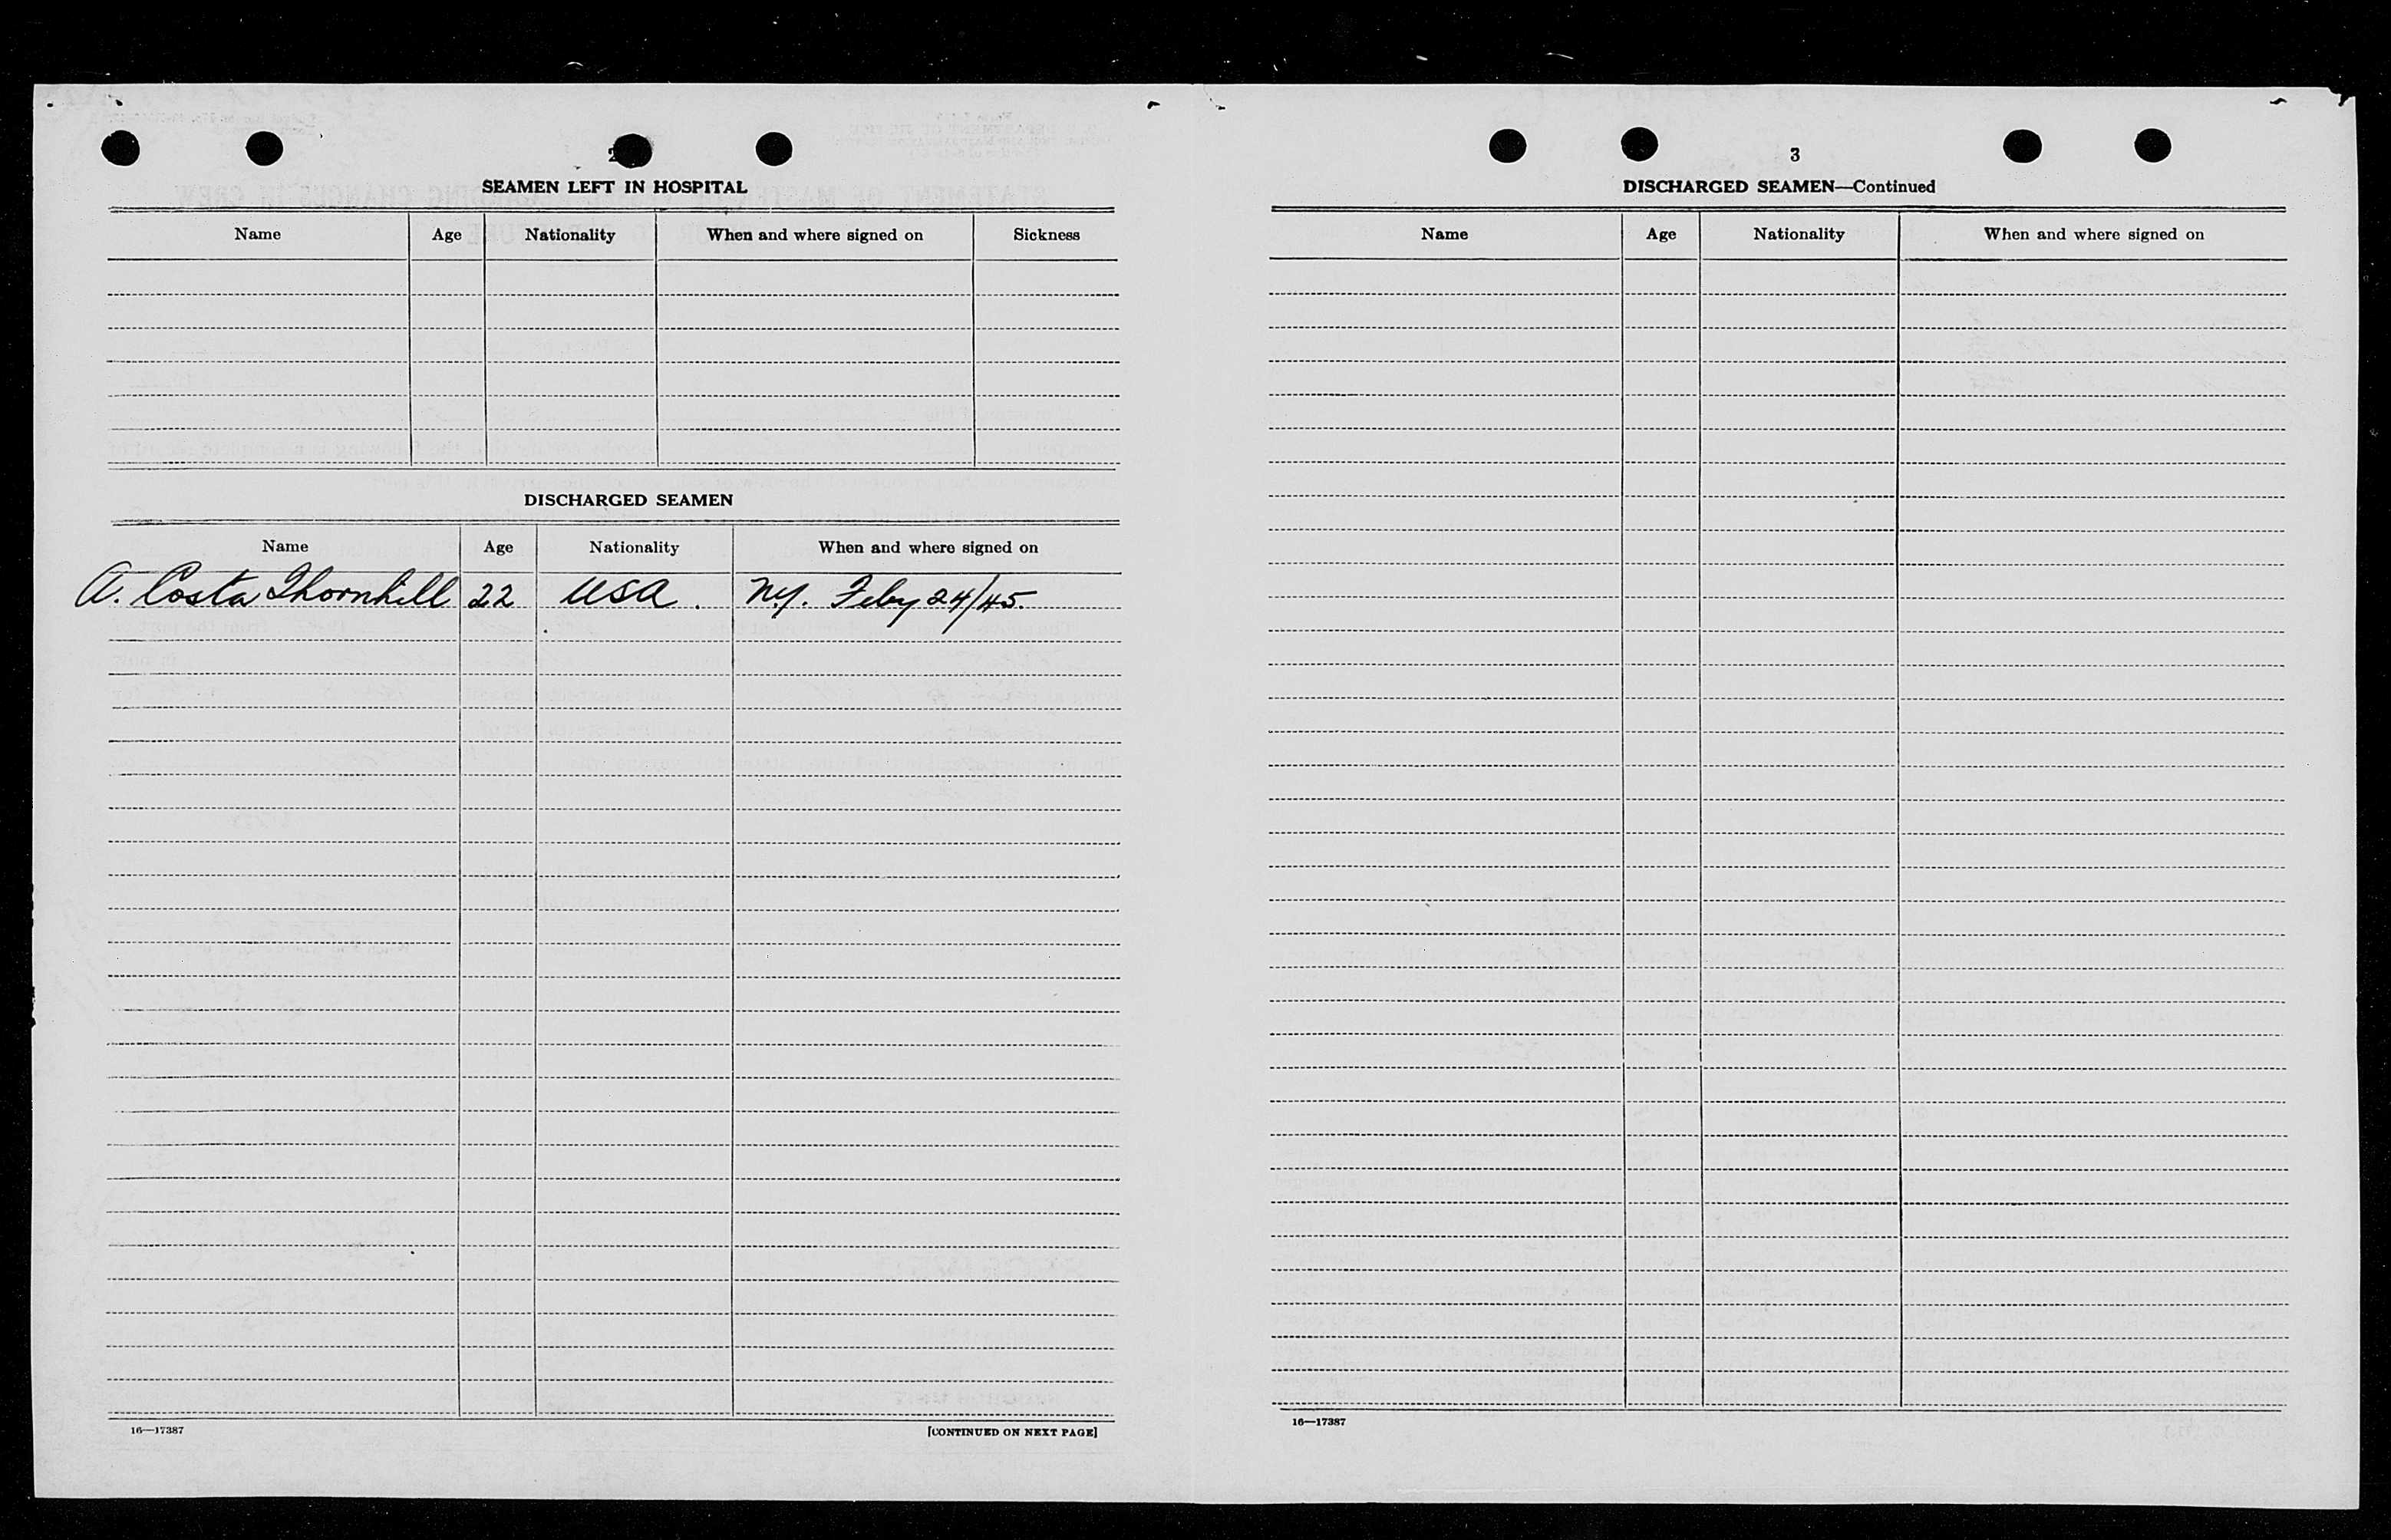 2
SEAMEN LEFT IN HOSPITAL
Name Age Nationality When and where signed on Sickness
DISCHARGED SEAMEN
Name Age Nationality When and where signed on
A. Costa Thornhill 22 USA. NY. Feby 24/45.
16—17387 [CONTINUED ON NEXT PAGE]
3
DISCHARGED SEAMEN—Continued
Name Age Nationality When and where signed on
16—17387